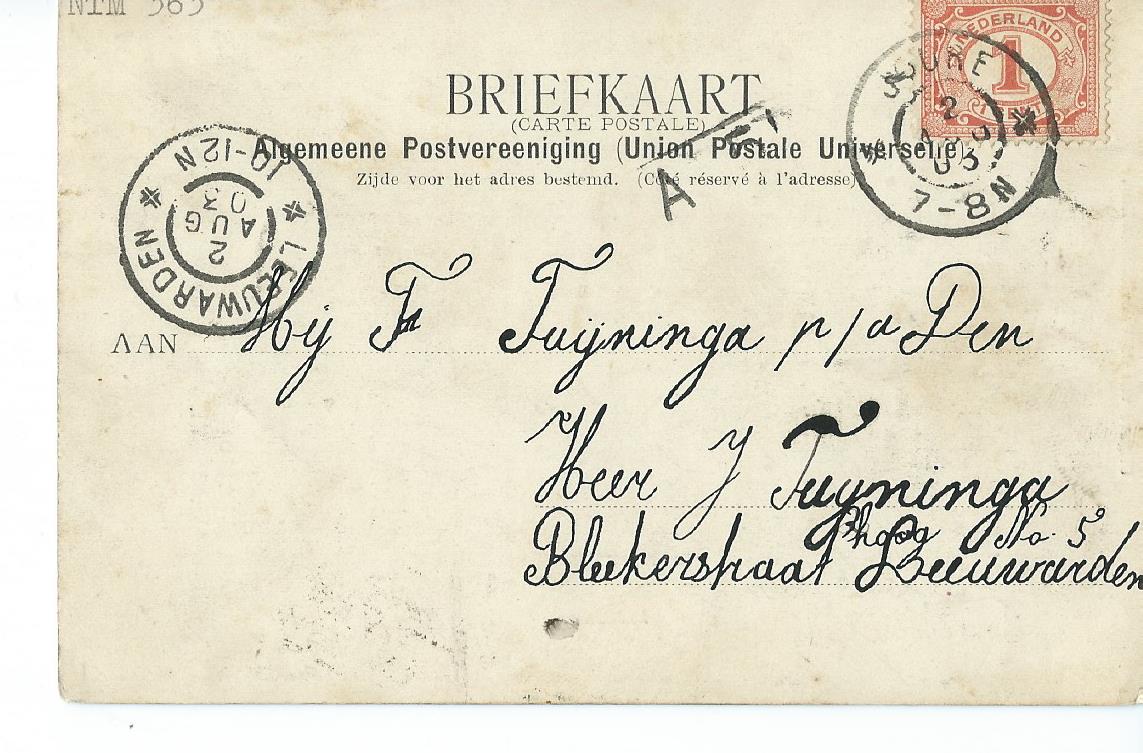 NTM 363
NEDERLAND
1
CENT
JOURE
2 AUG 03
7-8N
BRIEFKAART
(CARTE POSTALE)
Algemeene Postvereeniging (Union Postale Universelle).
Zijde voor het adres bestemd. (Côté réservé à l'adresse)
A
LEEUWARDEN
2
AUG
03
10-12N
AAN Mij F Tuijninga p/a Den
Heer J Tuyninga
hoog No. 5
Bleekerstraat Leeuwarden